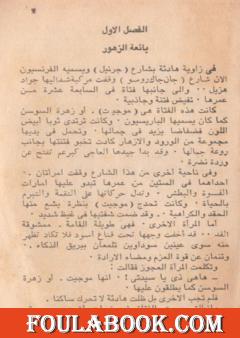 الفصل الاول
بائعة الزهور
في زاوية هادئة بشارع ( جرنيل ) ويسميه الفرنسيون
الآن شارع ( جان جاك روسو ) وقفت مركبة شد اليها جواد
هزيل .. والى جانبها فتاة فى السابعة عشرة من
عمرها : تفيض فتنة وجاذبية .
كانت هذه الفتاة هى ( موجيت ) . أو زهرة السوسن
كما كان يسميها الباريسيون . وكانت ترتدى ثوبا أبيض
اللون فضفاضا يزيد فى جمالها . وتحمل فى يديها
مجموعة من الورود والأزهار كادت تخفى فتنتها بجانب
روعة جمالها . وقد بدا جيدها العاجى كبرعم تفتح عن
وردة نضرة .
وفى ناحية أخرى من هذا الشارع وقفت امرأتان .
احداهما فى الستين من عمرها تبدو عليها امارات
القسوة والبطش . وتدل حركاتها على النقمة والتبرم
بالحياة . وكانت تحدج (موجيت ) بنظرة يشع منها
الحقد والكراهية . وقد ضمت شفتيها فى غيظ شديد .
أما المرأة الأخرى . فهى طويلة القامة . ممشوقة
القد .. قد أخفت وجهها تحت قناع أسود فلا تكاد تظهر
منه سوى عينين سوداوين تلمعان ببريق الذكاء .
وتنمان عن قوة العزم ومضاء الارادة .
وتكلمت المرأة العجوز فقالت :
ـ هاهى ذى يا سيدتى ! انها موجيت . أو زهرة
السوسن كما يطلقون عليها .
فلم تجب الأخرى بل ظلت هادئة لا تحرك ساكنا .
FOULABOOK.COM